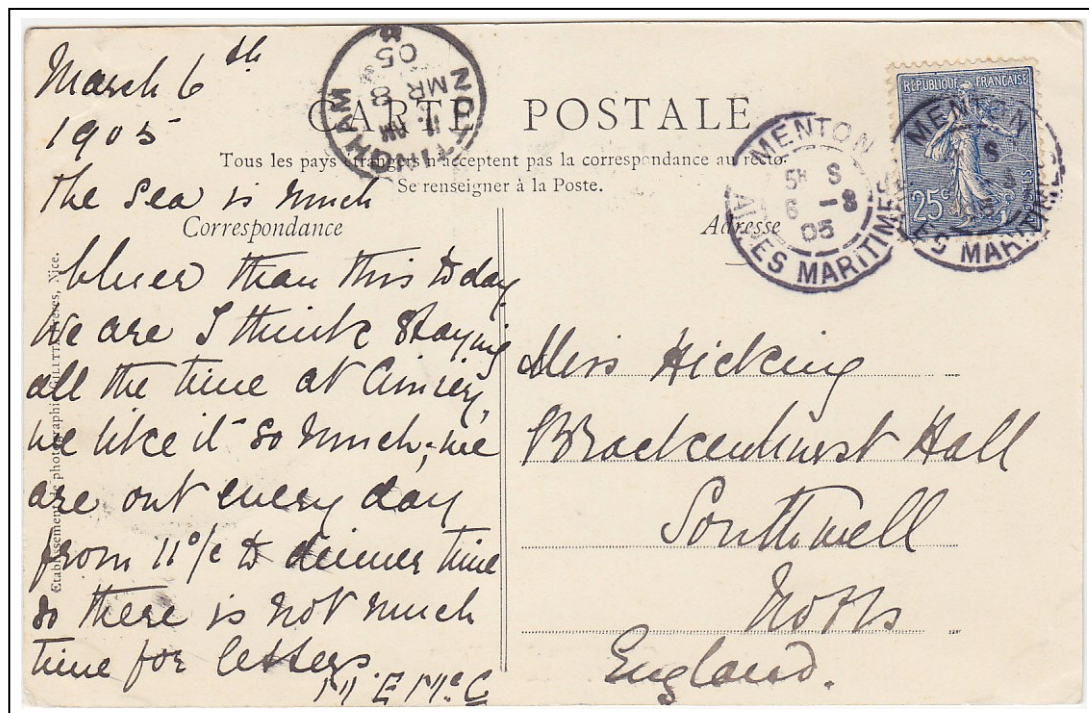 March 6th
1905
CARTE POSTALE
Tous les pays étrangers n'acceptent pas la correspondance au recto.
Se renseigner à la Poste.
Correspondance
Adresse
the sea is much
bluer than this today
we are I think staying
all the time at Cimiez,
we like it so much; we
are out every day
from 11 o/c to dinner time
so there is not much
time for letters.
M. E McC
Miss Hicking
Brackenhurst Hall
Southwell
Notts
England.
NOTTINGHAM
11 AM
MR 8
05
MENTON
5H S
6 -3
05
ALPES MARITIMES
REPUBLIQUE FRANÇAISE
25c
POSTES
MENTON
ALPES MARITIMES
Etablissement de photographie GILETTA Frères, Nice.